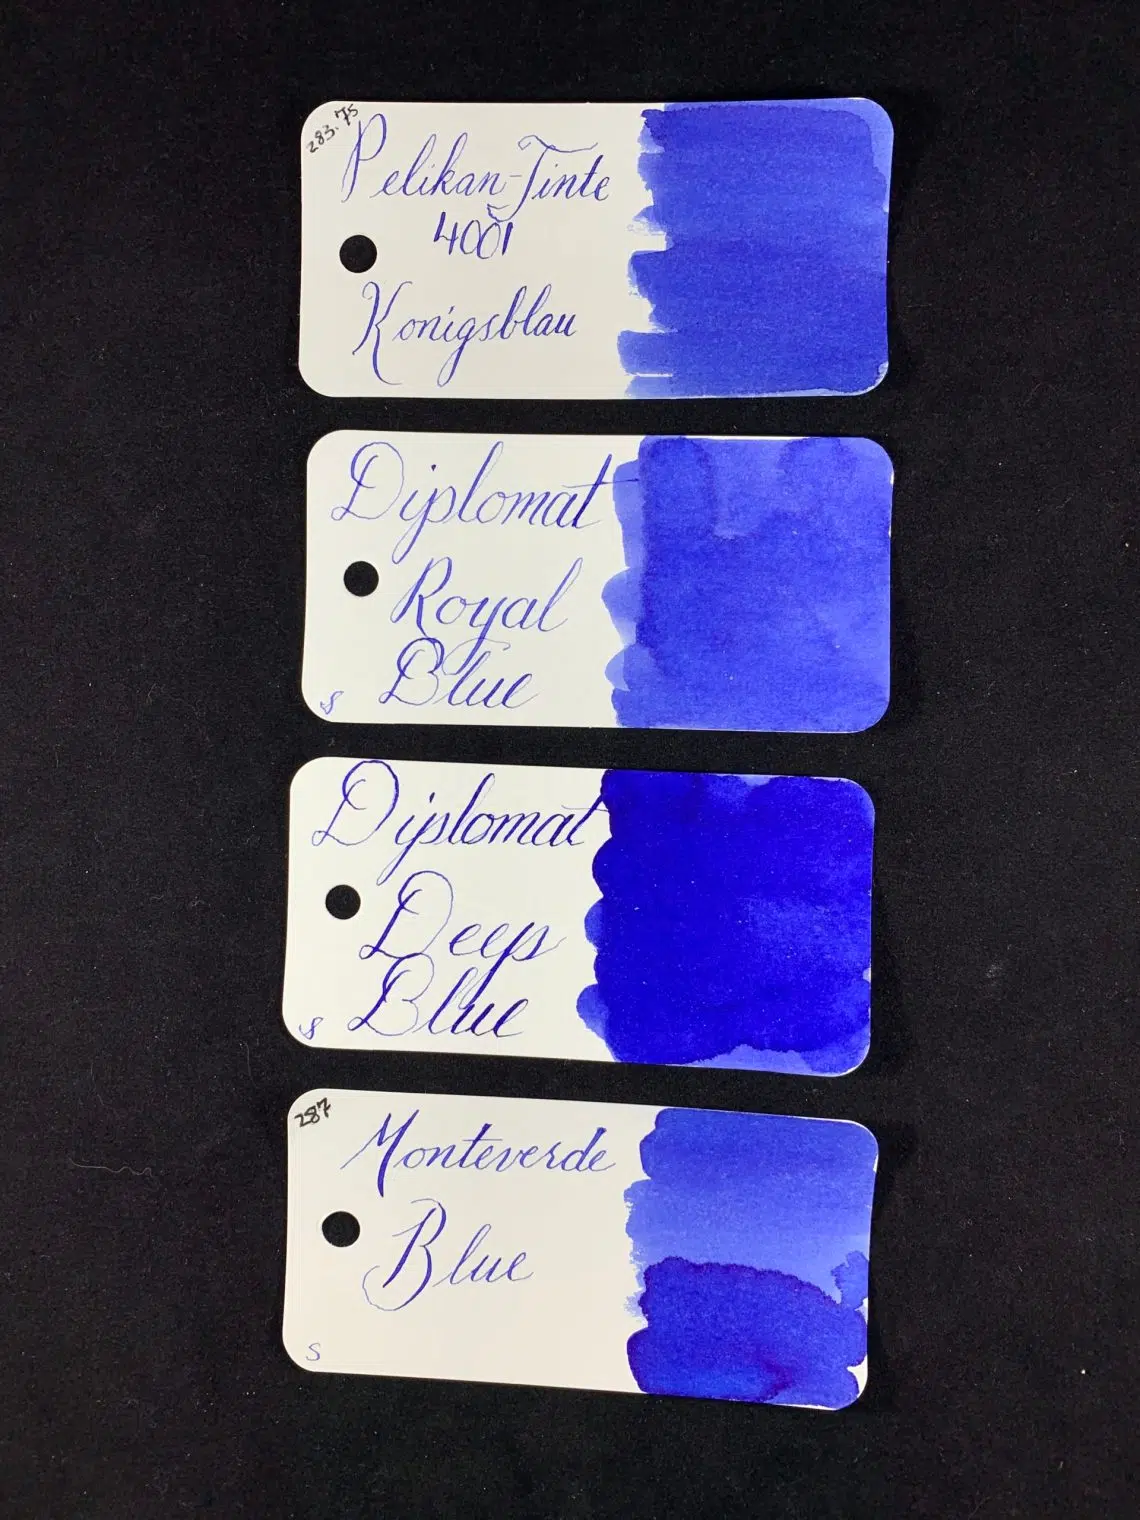 283.75
Pelikan-Tinte
4001
Konigsblau
Diplomat
Royal
Blue
S
Diplomat
Deep
Blue
S
287
Monteverde
Blue
S